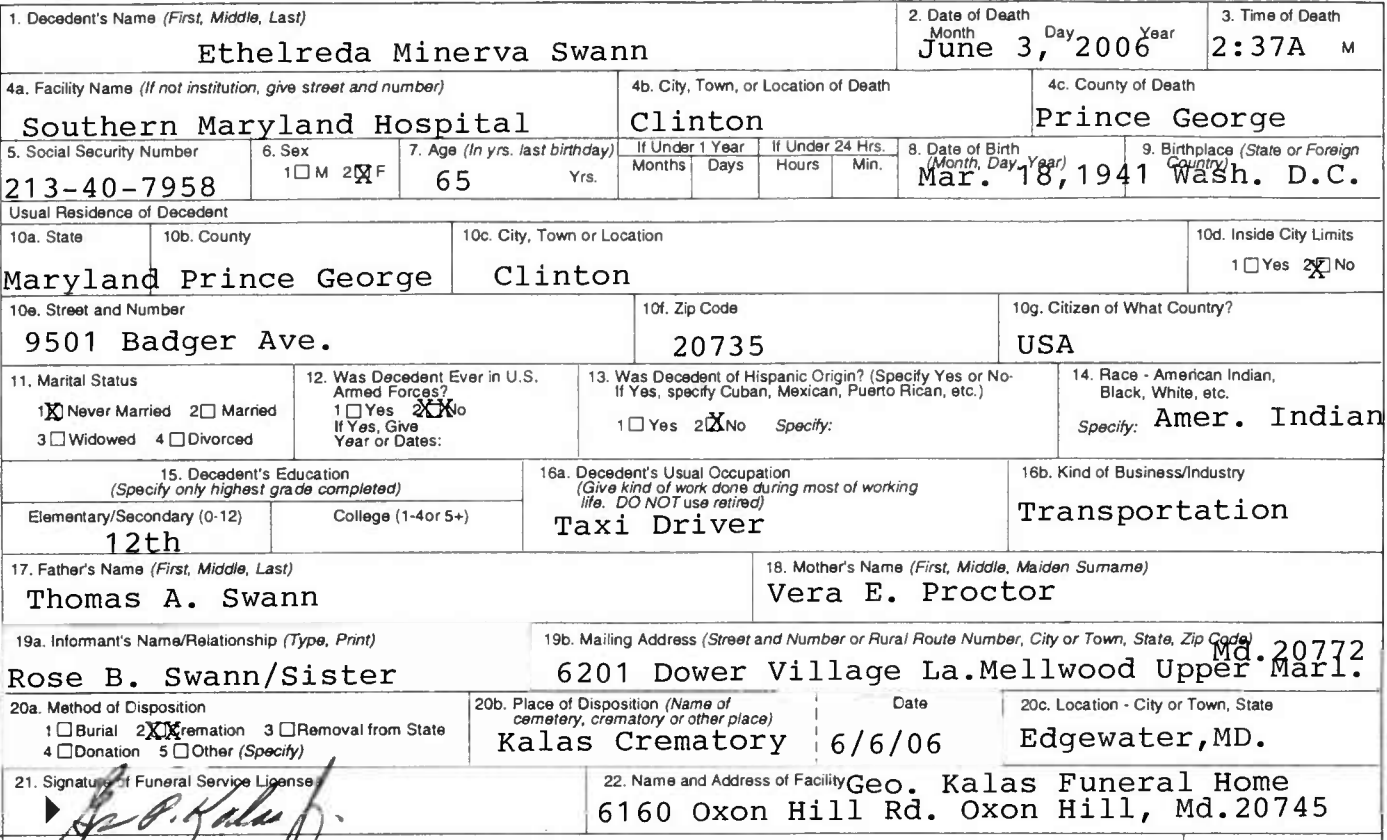 1. Decedent's Name (First, Middle, Last)
Ethelreda Minerva Swann
2. Date of Death
Month Day Year
June 3, 2006
3. Time of Death
2:37A M
4a. Facility Name (If not institution, give street and number)
Southern Maryland Hospital
4b. City, Town, or Location of Death
Clinton
4c. County of Death
Prince George
5. Social Security Number
213-40-7958
6. Sex
1 ☐ M 2 ☒ F
7. Age (In yrs. last birthday)
65 Yrs.
If Under 1 Year
Months Days
If Under 24 Hrs.
Hours Min.
8. Date of Birth
(Month, Day, Year)
Mar. 18,1941
9. Birthplace (State or Foreign
Country)
Wash. D.C.
Usual Residence of Decedent
10a. State
Maryland
10b. County
Prince George
10c. City, Town or Location
Clinton
10d. Inside City Limits
1 ☐ Yes 2 ☒ No
10e. Street and Number
9501 Badger Ave.
10f. Zip Code
20735
10g. Citizen of What Country?
USA
11. Marital Status
1 ☒ Never Married 2 ☐ Married
3 ☐ Widowed 4 ☐ Divorced
12. Was Decedent Ever in U.S.
Armed Forces?
1 ☐ Yes 2 ☒ No
If Yes, Give
Year or Dates:
13. Was Decedent of Hispanic Origin? (Specify Yes or No-
If Yes, specify Cuban, Mexican, Puerto Rican, etc.)
1 ☐ Yes 2 ☒ No Specify:
14. Race - American Indian,
Black, White, etc.
Specify: Amer. Indian
15. Decedent's Education
(Specify only highest grade completed)
Elementary/Secondary (0-12) College (1-4or 5+)
12th
16a. Decedent's Usual Occupation
(Give kind of work done during most of working
life. DO NOT use retired)
Taxi Driver
16b. Kind of Business/Industry
Transportation
17. Father's Name (First, Middle, Last)
Thomas A. Swann
18. Mother's Name (First, Middle, Maiden Surname)
Vera E. Proctor
19a. Informant's Name/Relationship (Type, Print)
Rose B. Swann/Sister
19b. Mailing Address (Street and Number or Rural Route Number, City or Town, State, Zip Code)
Md.20772
6201 Dower Village La.Mellwood Upper Marl.
20a. Method of Disposition
1 ☐ Burial 2 ☒ Cremation 3 ☐ Removal from State
4 ☐ Donation 5 ☐ Other (Specify)
20b. Place of Disposition (Name of
cemetery, crematory or other place)
Kalas Crematory
Date
6/6/06
20c. Location - City or Town, State
Edgewater,MD.
21. Signature of Funeral Service License
22. Name and Address of Facility Geo. Kalas Funeral Home
6160 Oxon Hill Rd. Oxon Hill, Md.20745